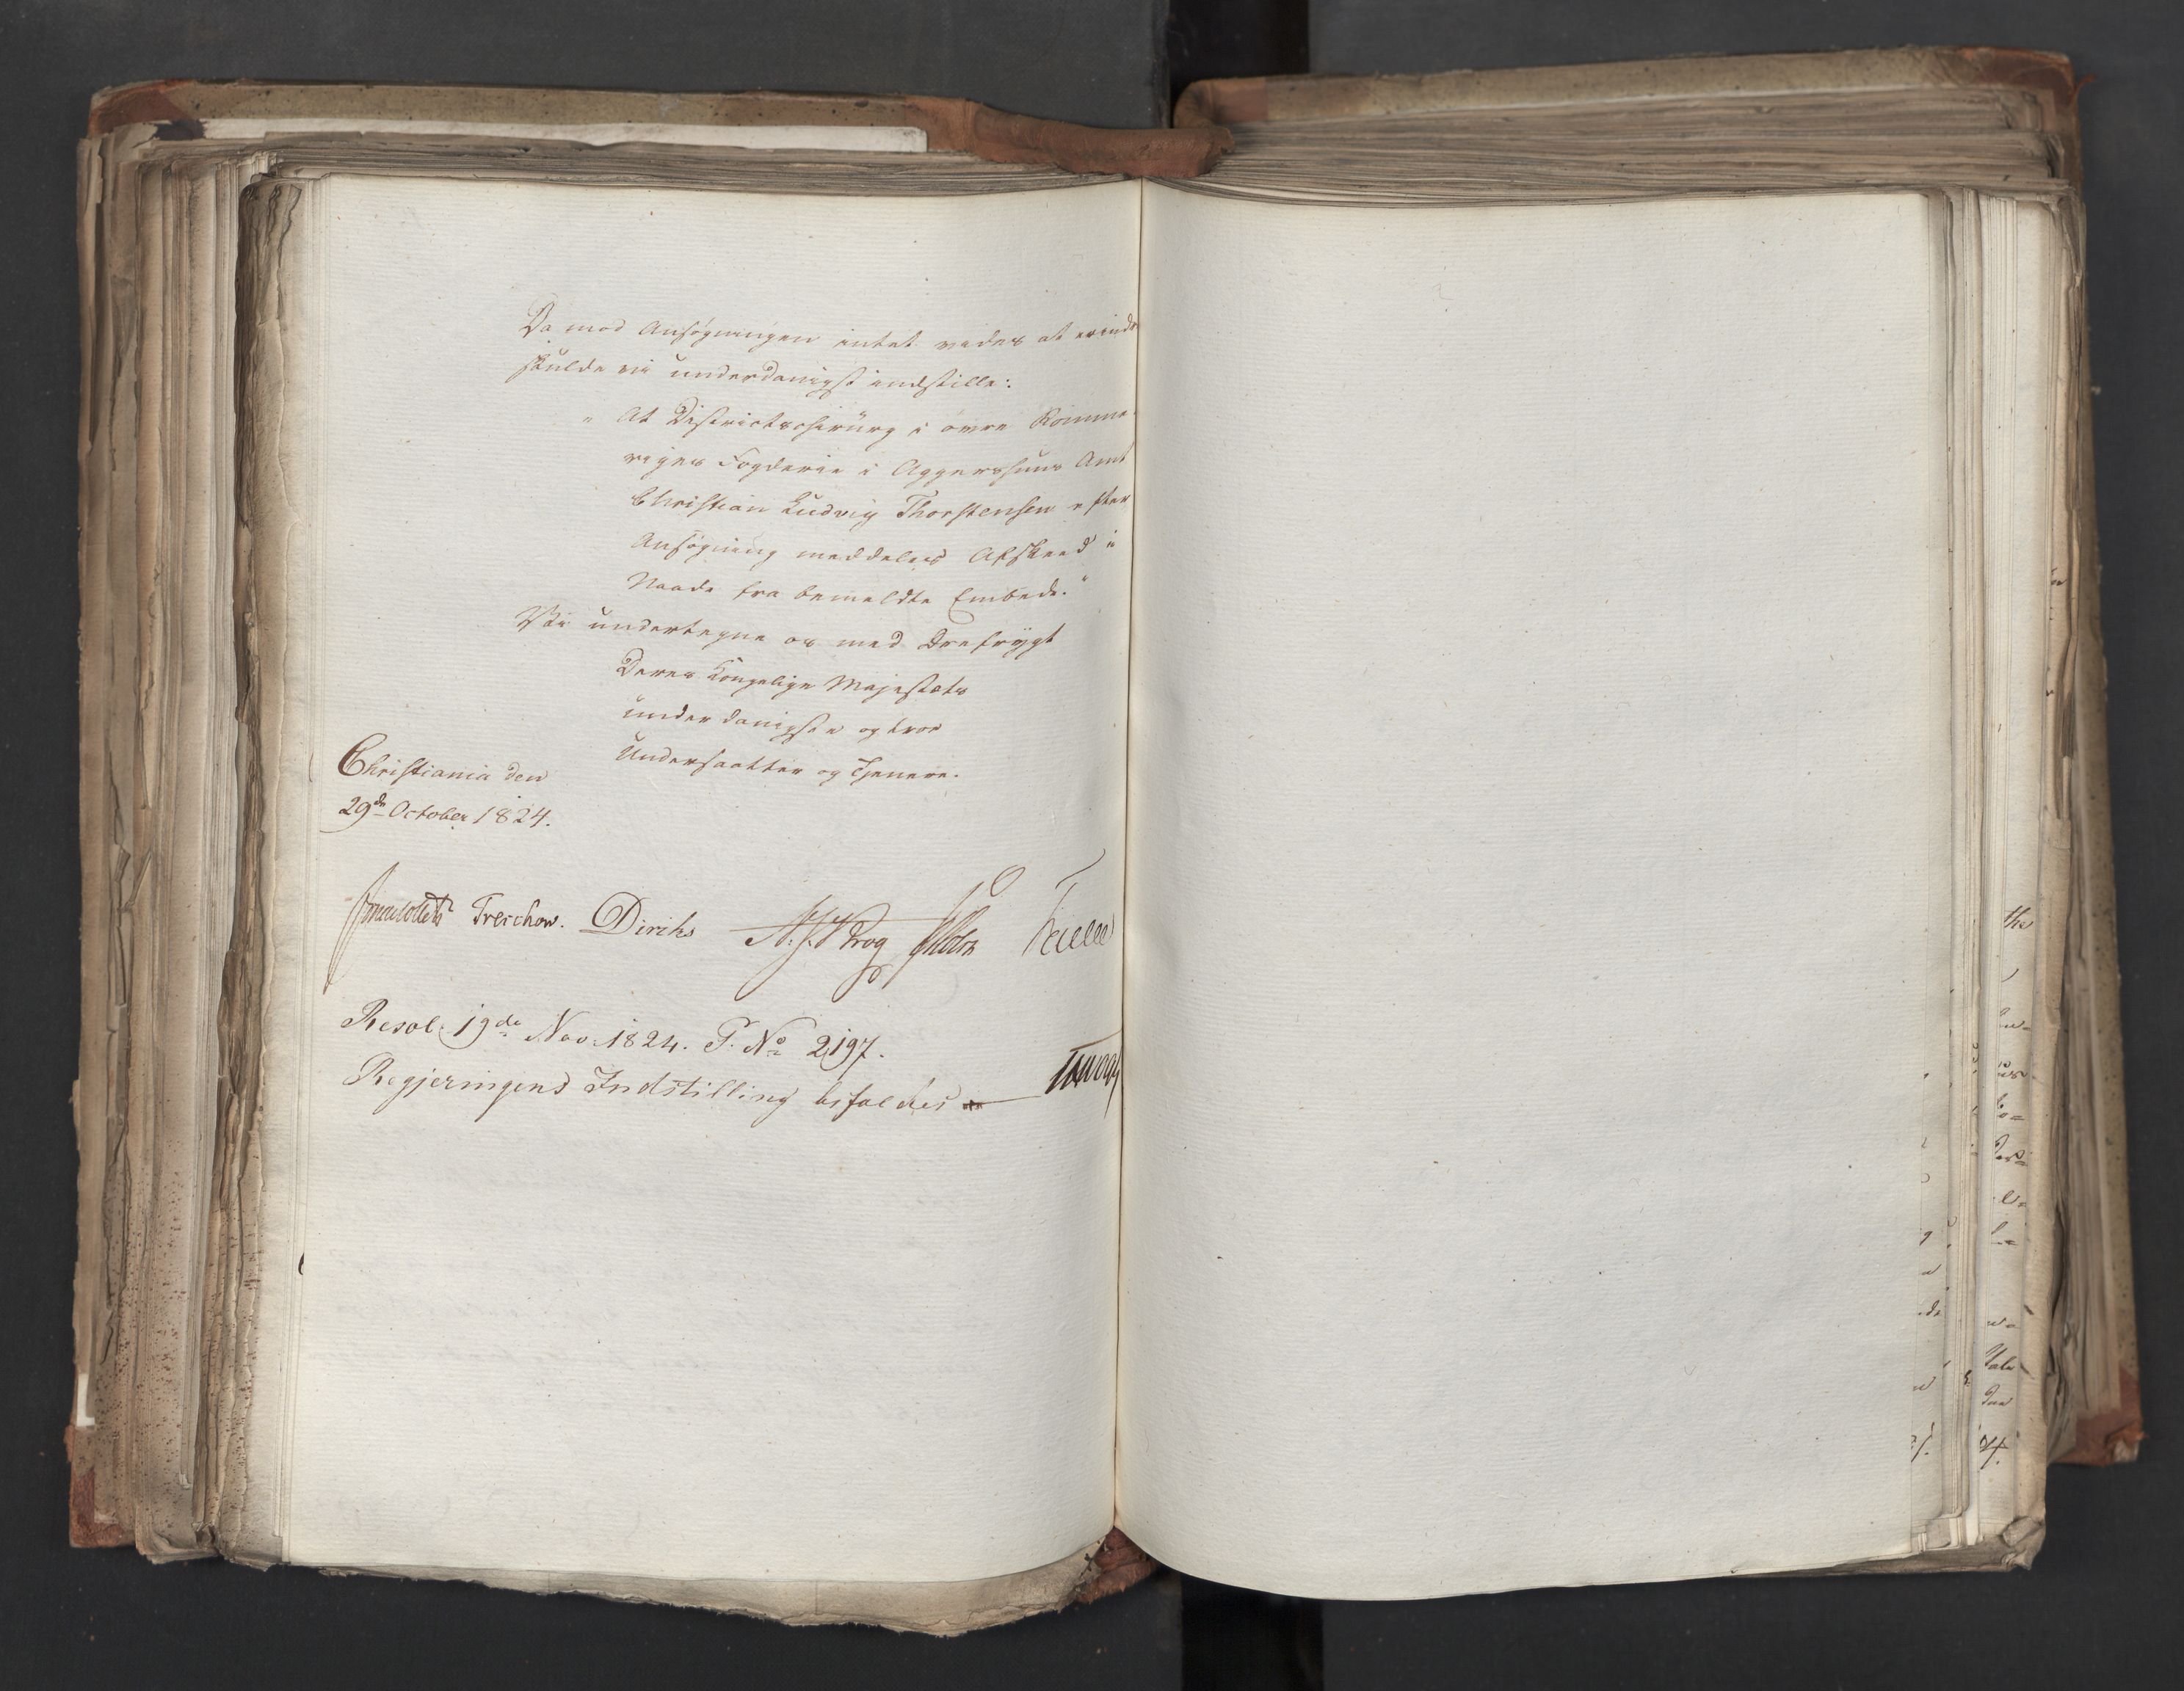 Da mod Ansøgningen intet vides at erindr
skulde vi underdanigst indstille:
" At Districtschirurg i øvre Romme
riges Fogderie i Aggershuus Amt
Christian Ludvig Thorstensen efter
Ansøgning meddeles Afskeed i
Naade fra bemeldte Embede."
Vi undertegne os med Ærefrygt
Deres Kongelige Majestæts
underdanigste og troe
Undersaatter og Tjenere.
Christiania den
29de October 1824.
Jonas Collett Treschow. Diriks Krog
Resol: 19de Nov. 1824. P. No 2,197.
Regjeringens Indstilling bifaldes